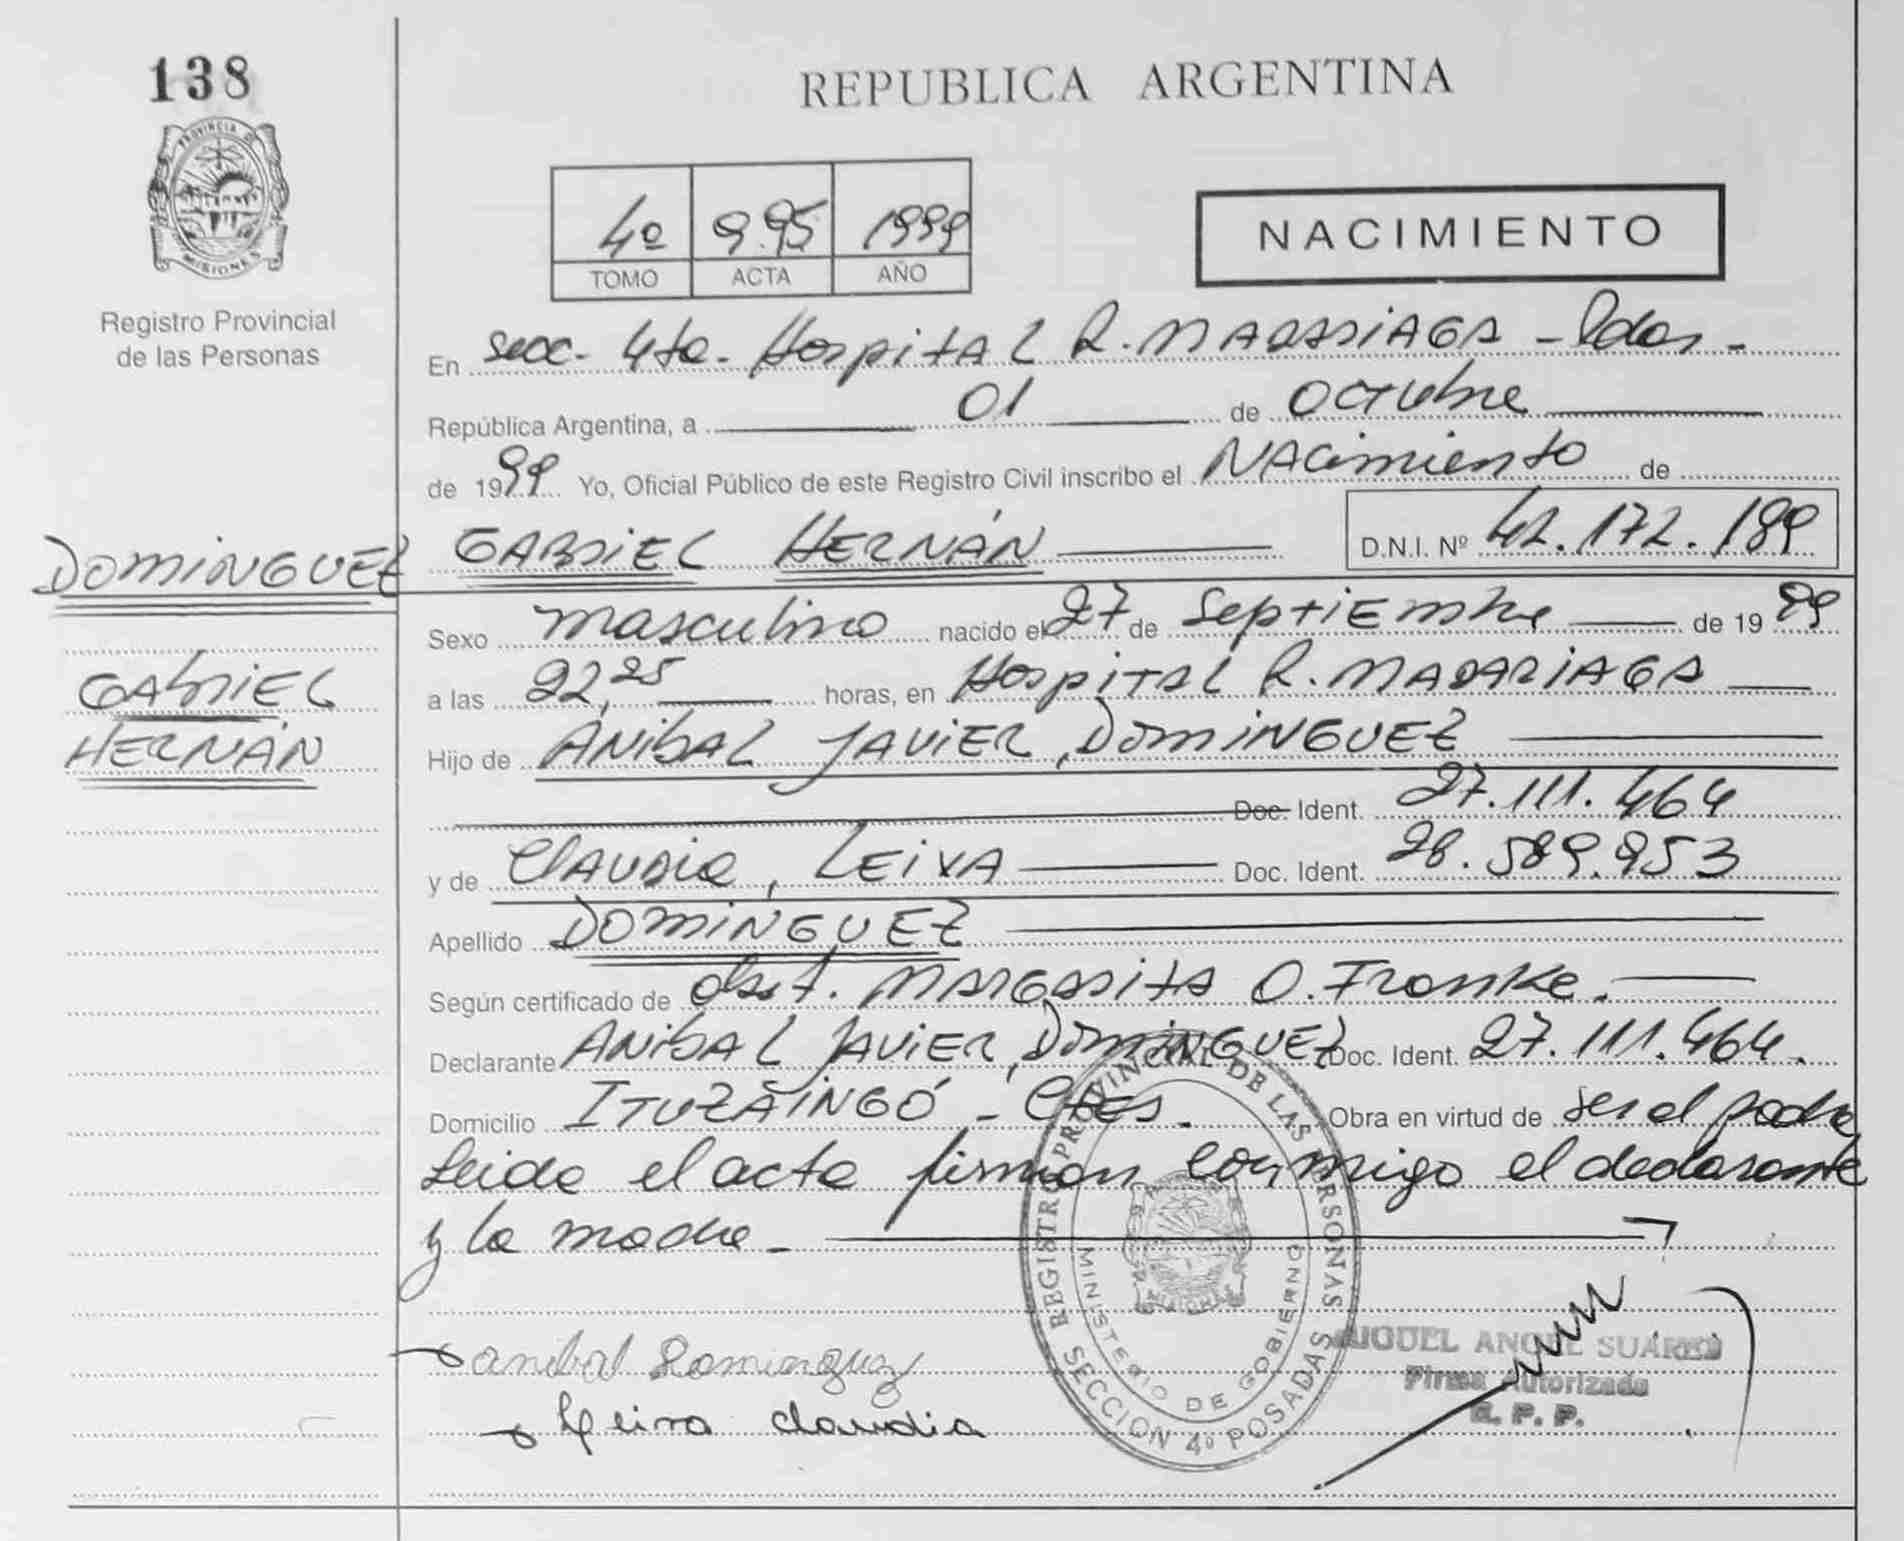 138
PROVINCIA DE
MISIONES
Registro Provincial
de las Personas
DOMINGUEZ
GABRIEL
HERNÁN
REPUBLICA ARGENTINA
4º 995 1999
TOMO ACTA AÑO
NACIMIENTO
En Secc. 4ta. Hospital R. MADARIAGA - Pdas -
República Argentina, a 01 de Octubre
de 1999 Yo, Oficial Público de este Registro Civil inscribo el NACimiento de
GABRIEL HERNÁN D.N.I. Nº 42.172.189
Sexo masculino nacido el 27 de Septiembre de 1999
a las 22,25 horas, en Hospital R. MADARIAGA
Hijo de ANIBAL JAVIER, DOMINGUEZ
Doc. Ident. 27.111.464
y de Claudia, LEIVA Doc. Ident. 28.589.953
Apellido DOMINGUEZ
Según certificado de Obst. MARGARITA O. Franke.
Declarante ANIBAL JAVIER, DOMINGUEZ Doc. Ident. 27.111.464.
Domicilio ITUZAINGÓ - Ctes. Obra en virtud de ser el padre
Leida el acta firman conmigo el declarante
y la madre -
anibal Dominguez
Leiva claudia
REGISTRO PROVINCIAL DE LAS PERSONAS
SECCION 4º POSADAS
MINISTERIO DE GOBIERNO
MIGUEL ANGEL SUAREZ
Firma Autorizada
R. P. P.